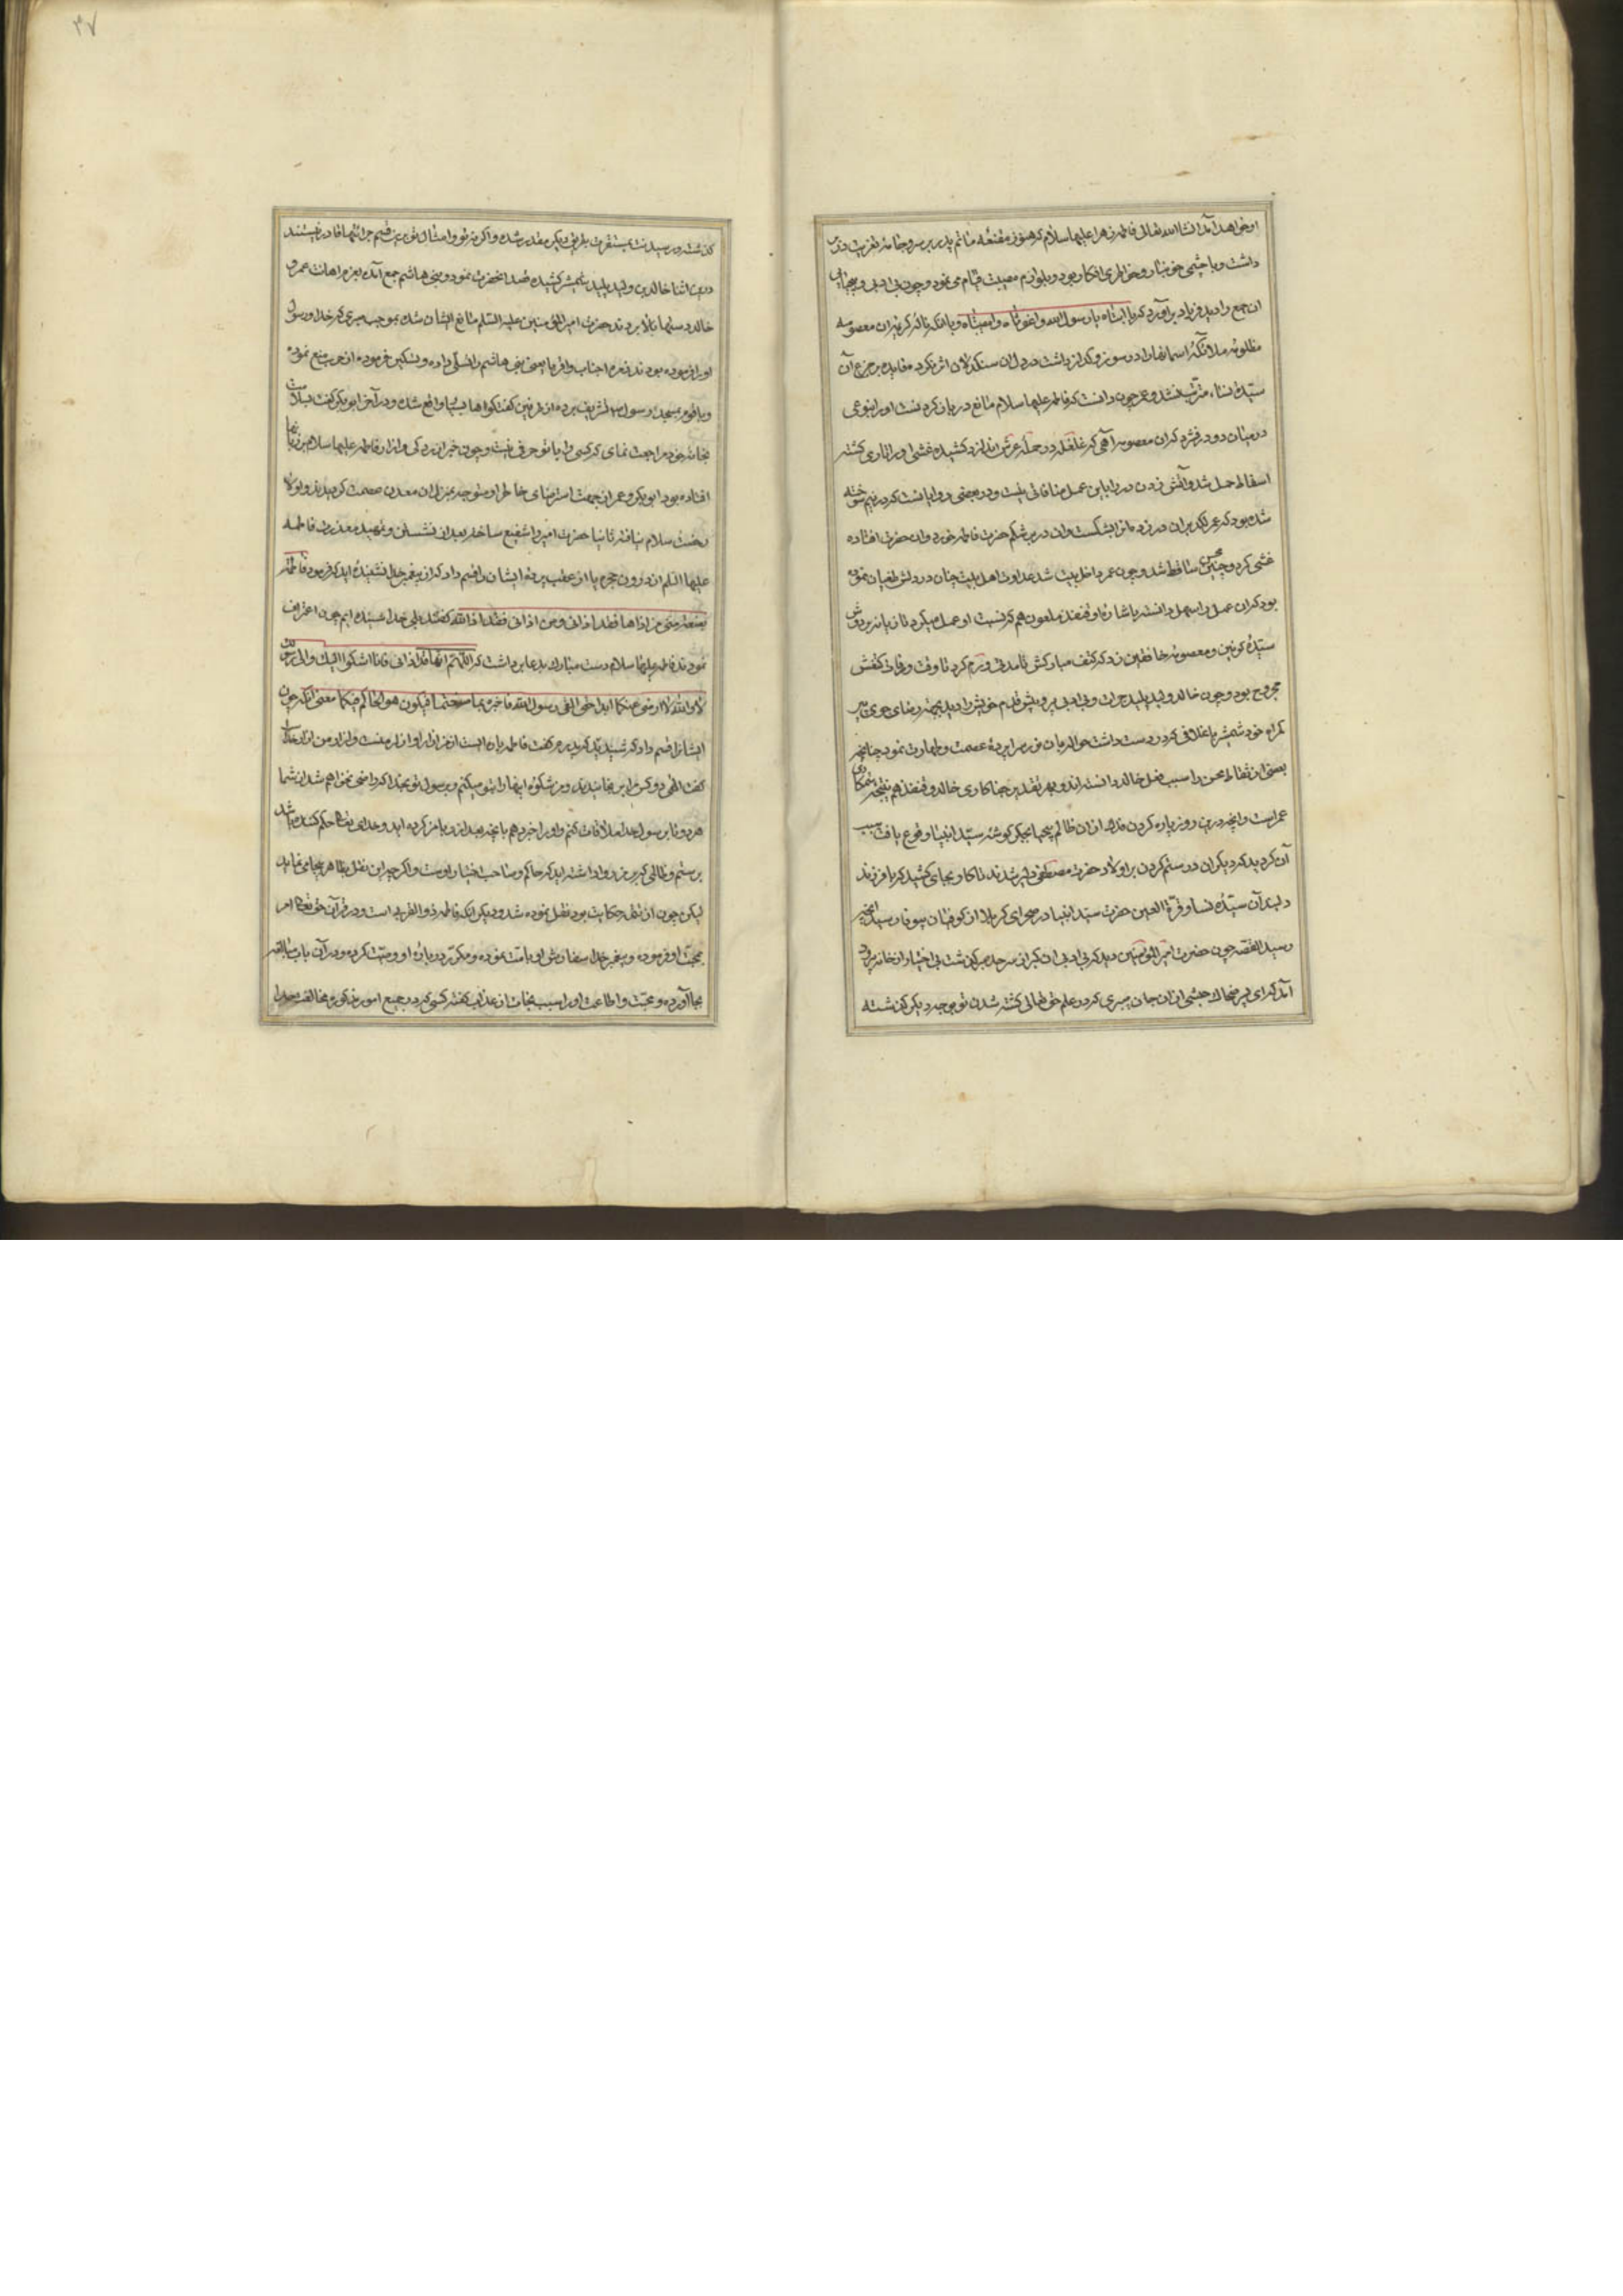 او خواهد آمد انشاالله تعالی فاطمه زهرا علیها سلام که هنوز مقنعه ماتم پدر بر سر و جامه تعزیت در بر
داشت و با چشمی خونبار و خواطری افکار بود و بلوازم مصیبت قیام می نمود و چون بی ادبی و بیحیایی
ان جمع را دید فریاد برآورد که یا ابتاه یا رسول الله واغوثاه وامصیبتاه و با آنکه ناله کردن ان معصومه
مظلومه ملائکه اسمانها را در سوز و گداز داشت در دل ان سنگدلان اثر نکرد و فایده بر جزع آن
سیده نساء مترتب نشد و عمر چون دانست که فاطمه علیها سلام مانع در باز کردنست او را بنوعی
در میان در و در فشرد که ان معصومه آهی که غلغله در حمله عرش اندازد کشیده غشی او را طاری گشته
اسقاط حمل شد و آتش زدن در را با این عمل منافاتی نیست و در بعضی روایاتست که در نیم سوخته
شده بود که عمر لگد بران در زد تا در بشکست و ان در بر شکم حضرت فاطمه خورد و ان حضرت افتاده
غشی کرد و جنین محسن ساقط شد و چون عمر داخل بیت شد عداوت اهل بیت چنان در دلش طغیان نموده
بود که ان عمل را سهل دانسته باشاره او قنفذ ملعون هم که نسبت او عمل میکرد تازیانه بر دوش
سیده کونین و معصومه خافقین زد که کتف مبارکش تا مدتی ورم کرد تا وقت وفات کتفش
مجروح بود و چون خالد ولید پلید جرات و بی ادبی پرویش قدم خویش را دید بجهة رضای جوی پیر
گمراه خود شمشیر با غلافی که در دست داشت حواله میان سرا پرده عصمت و طهارت نمود چنانچه
بعضی از ثقات محسن را سبب فعل خالد دانسته اند و بهر تقدیر جفاکاری خالد و قنفذ هم نتیجه ستمکاری
عمر است و انچه درین روز پاره کردن از ان ظالم بیحیا بجگر گوشه سید انبیا وقوع یافت سبب
آن گردید که دیگران در ستم کردن بر اولاد حضرت مصطفی دلیر شدند تا کار بجای کشید که با فرزند
دلبند آن سیده نسا و قرة العین حضرت سید انبیا در صحرای کربلا از کوفیان بیوفا رسید انچه
رسید القصه چون حضرت امیرالمؤمنین دید که بی ادبی ان گبران سر حد گذشت بی اختیار از خانه بیرون
آمد که ای پسر ضحاک حبشی از ان جان میبری که در علم حق تعالی کشته شدن تو بوجه دیگر گذشته
گذشته و رسیدنت بسقرت بطریق دیگر مقدر شده و اگر نه تو و امثال تو برین قسم جرائتها قادر نیستند
درین اثنا خالد بن ولید پلید شمشیر کشیده قصد انحضرت نمود و بنی هاشم جمع آمده بعزم اهانت عمر و
خالد دستها بالا بردند حضرت امیرالمؤمنین علیه السلام مانع ایشان شده بموجب صبری که خدا و رسول
او را فرموده بودند زبیر و احباب و اقربا یعنی بنی هاشم را تسلی داده و تسکین فرموده از حرب منع نموده
و با قوم بمسجد رسول تشریف برده از طرفین گفتگوها بسیار واقع شده و در آخر ابوبکر گفت بسلامت
بخانه خود مراجعت نمای که کسی را با تو حرفی نیست و چون خبر آزردگی و ازار فاطمه علیها سلام بر زبانها
افتاده بود ابوبکر و عمر از جهت استرضای خاطر او متوجه منزل ان معدن عصمت گردیدند و اولا
رخصت سلام نیافته ثانیا حضرت امیر را شفیع ساخته بعد از نشستن و تمهید معذرت فاطمه
علیها السلام از درون حجره یا از عقب پرده ایشان را قسم داد که از پیغمبر خدا نشنیده اید که فرمود فاطمة
بضعة منی من اذاها فقد اذانی و من اذانی فقد اذا الله گفتند بلی بخدا شنیده ایم چون اعتراف
نمودند فاطمه علیها سلام دست مبارک بدعا برداشت که اللهم انهما قد اذانی فانا اشکوا الیک و الی رسولک
لا والله لا ارضی عنکما ابدا حتی القی رسول الله فاخبره بما صنعتما فیکون هو الحاکم فیکما معنی انکه چون
ایشان را قسم داد که شنیدید که پدرم گفت فاطمه پاره ایست از من ازار او ازار منست و ازار من ازار خداست
گفت الهی دو کس مرا برنجانیدند و من شکوه اینها را بتو میکنم و برسول تو بخدا که راضی نخواهم شد از شما
هر دو تا برسول خدا ملاقات کنم و او را خبر دهم بانچه بعد از و با من کرده اید و خدای تعالی حکم کننده باشد
بر ستم و ظلمی که بر من روا داشته اید که حاکم و صاحب اختیار اوست و اگر چه این نقل بظاهر بیجا می نماید
لیکن چون از تتمه حکایت بود نقل نموده شد و دیگر انکه فاطمه ذوالقربی است و در قرآن حق تعالی امر
بمحبت او فرموده و پیغمبر خدا سفارش او بامت نموده و مکرر در باره او وصیت کرده و در آن باب مبالغه
بجا آورده و محبت و اطاعت او را سبب نجات از عذاب گفته کسی که در جمیع امور مذکوره مخالفت خدا